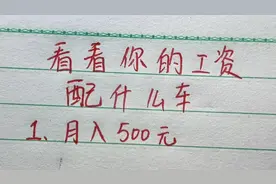 看看你的工资
配什么车
1、月入500元